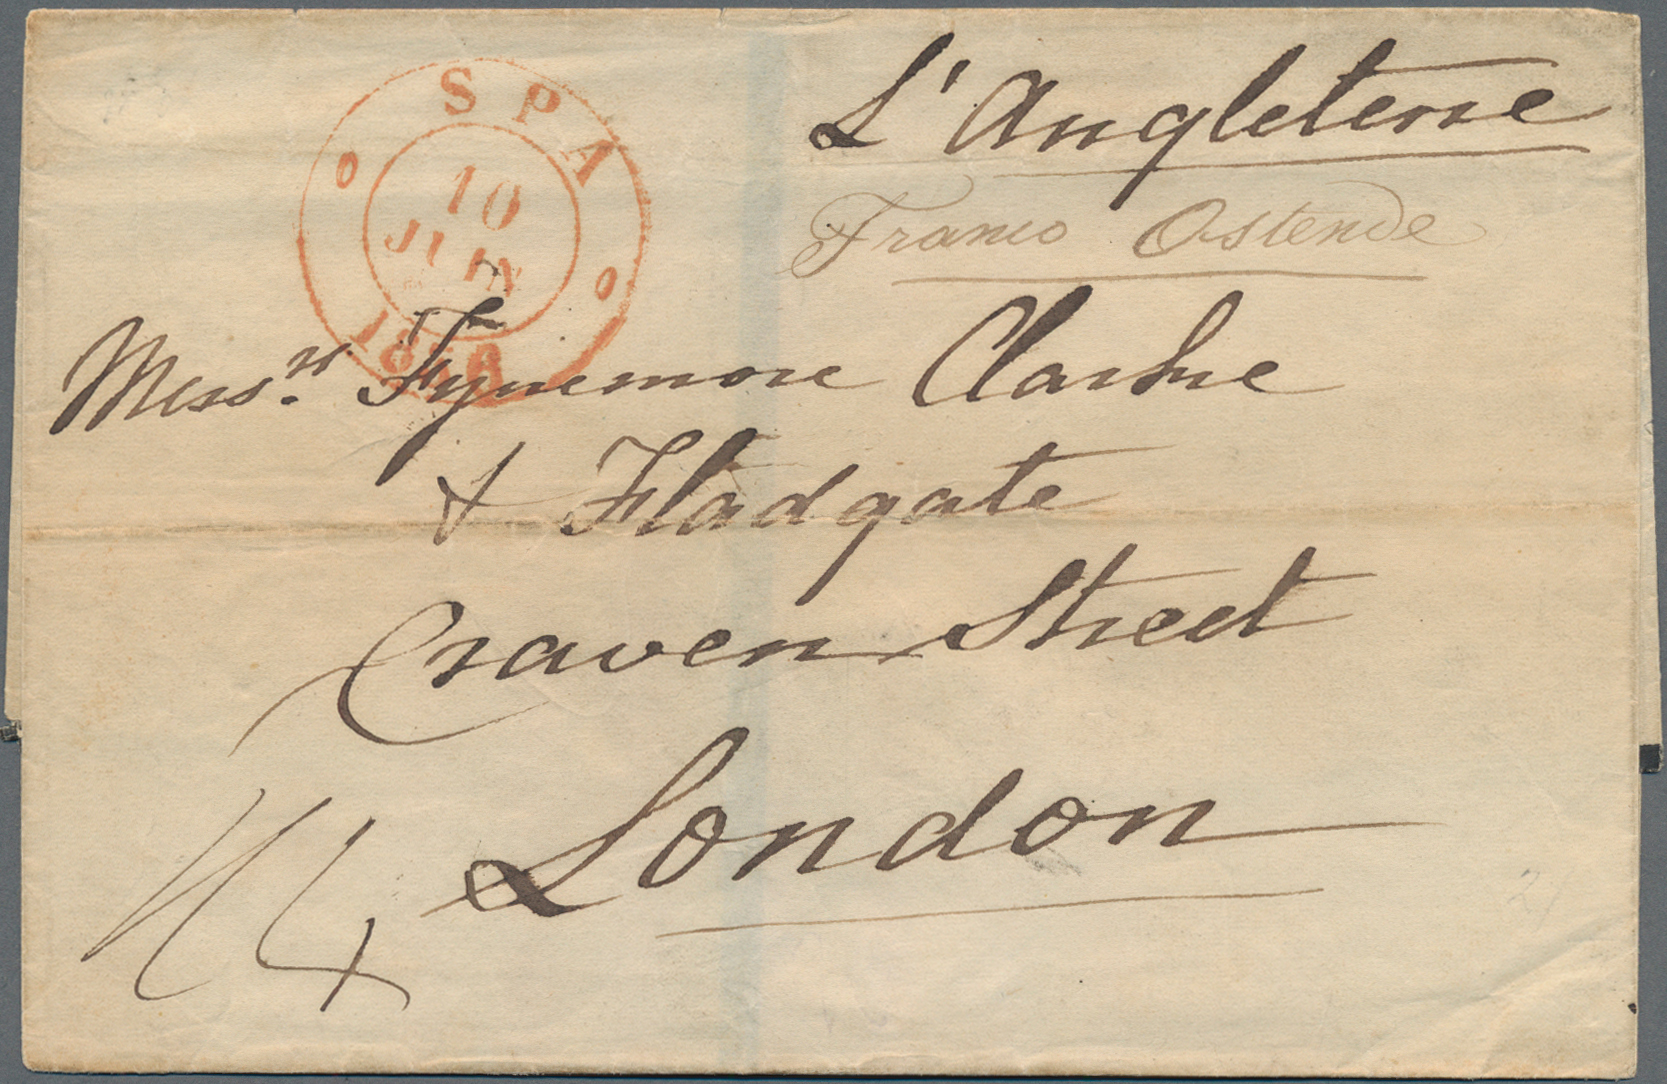 SPA
10
JUIN
L'Angleterre
Franco Ostende
Mess.rs Fynmore Clarke
& Fladgate
Craven Street
London